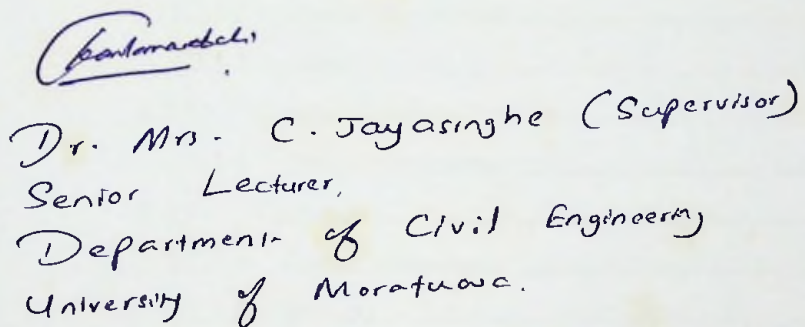 Dr. Mrs. C. Jayasinghe (Supervisor)
Senior Lecturer,
Department of Civil Engineering
University of Moratuwa.